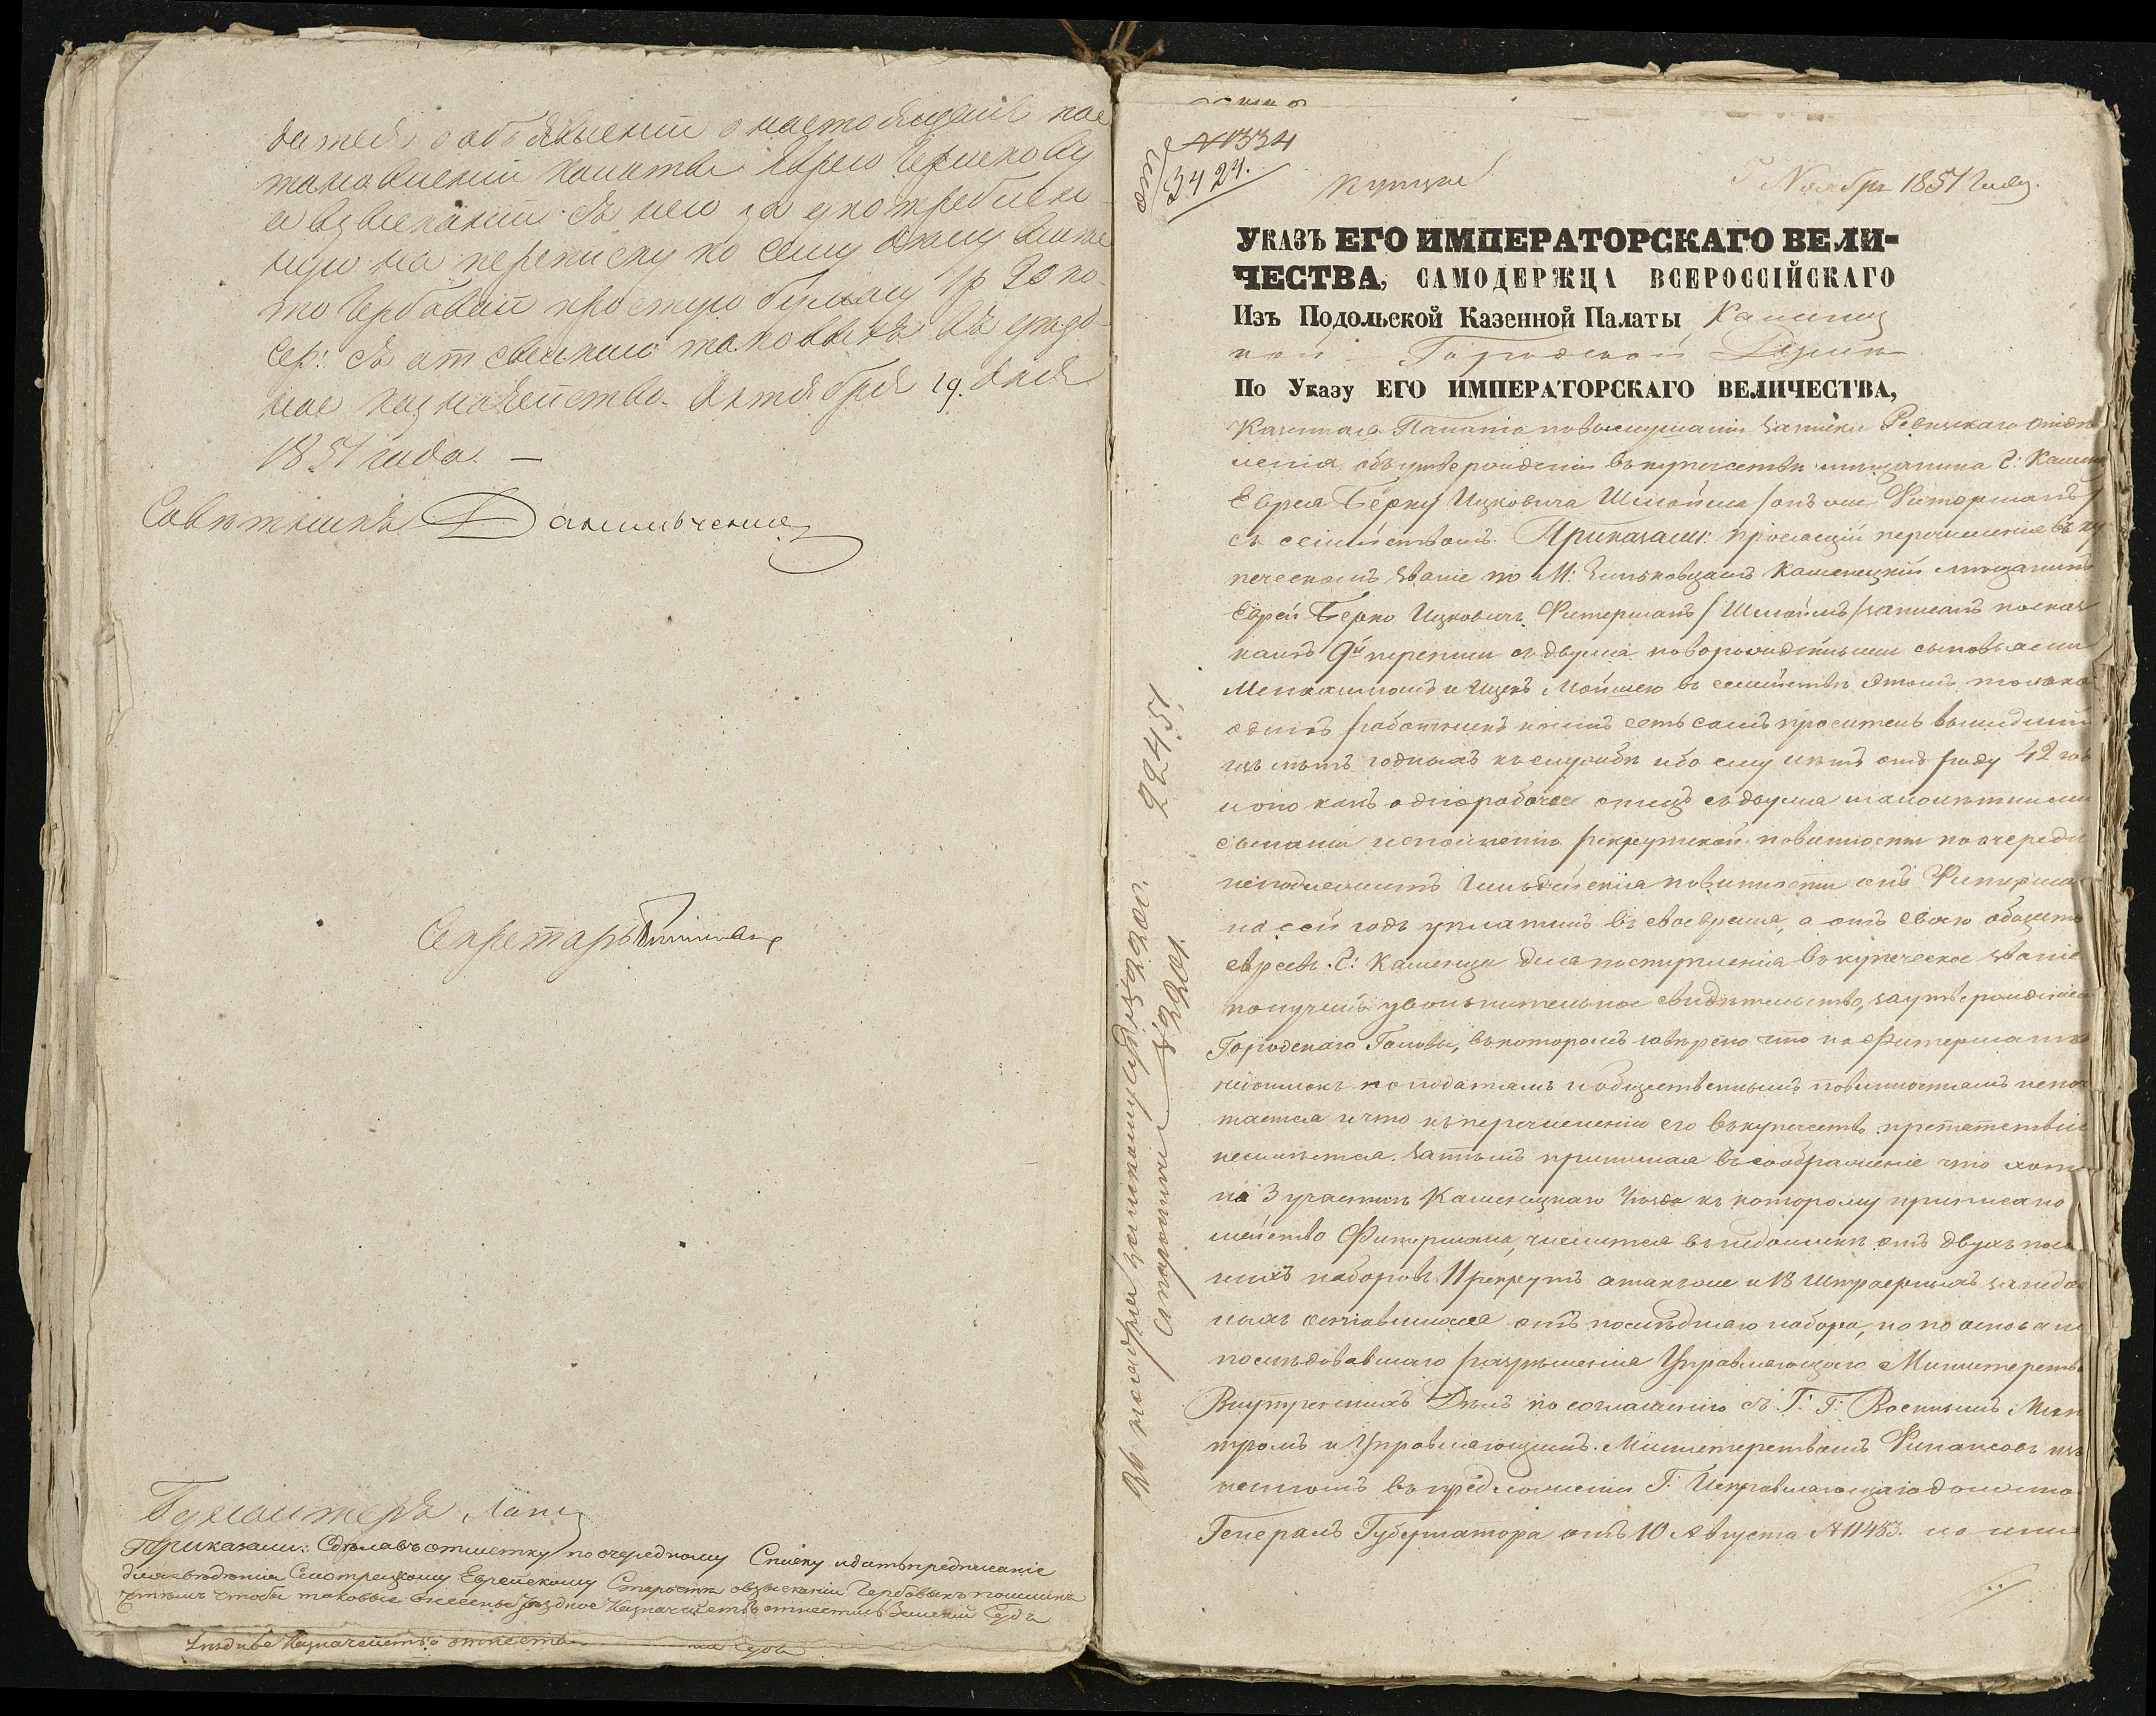 дателя о объявленіи о настоящемъ пос
тановленіи палаты Еврею Гершкову
и взысканіи съ него за употреблен
ную на переписку по сему дѣлу вмѣс
то Гербовой простую бумагу 1 р 20 ко
сер: съ отсылкою таковыхъ въ уѣзд
ное казначейство. Октября 19. дня
1851 года. —
Совѣтникъ
Секретарь
Бухгалтеръ
Приказали: Сдѣлавъ отмѣтку по очередному Списку и дать предписаніе
для свѣдѣнія Смотрицкому Еврейскому Старостѣ о взысканіи Гербовыхъ пошлинъ
съ тѣмъ чтобы таковые внесены въ Уѣздное Казначейство отнестись въ Земскій Судъ
Уѣздное Казначейство отнестись Судъ
№1334
3424.
купцы
Ноября 1851 года.
УКАЗЪ ЕГО ИМПЕРАТОРСКАГО ВЕЛИ-
ЧЕСТВА, САМОДЕРЖЦА ВСЕРОССІЙСКАГО
Изъ Подольской Казенной Палаты Каменец
кой Городской Думѣ
По Указу ЕГО ИМПЕРАТОРСКАГО ВЕЛИЧЕСТВА,
Казенная Палата по выслушаніи записки Ревизскаго отдѣ
ленія объ утвержденіи въ купечествѣ мѣщанина Г: Каменца
Еврея Берку Ицковича Шмойша /онъ же Фитерманъ/
съ семействомъ. Приказали: просящій перечисленія въ ку
печескомъ званіе по М: Зиньковцамъ Каменецкій мѣщанинъ
Еврей Берко Ицковичъ Фитерманъ /Шмойшъ/ записанъ по сказ
камъ 9й переписи съ двумя новорожденными сыновьями
и Ицекъ Мойшею въ семействѣ этомъ только
одинъ работникъ коимъ есть самъ проситель вышедшій
изъ лѣтъ годныхъ къ службѣ ибо ему лѣтъ отъ роду 42 год
и оно какъ однорабочее отецъ съ двумя малолѣтними
сынами исполненію рекрутской повинности по очереди
неподлежитъ Гильдейскія повинности онъ Фитерма
на сей годъ уплатилъ въ свое время, а отъ своего обществ
евреевъ Г: Каменца для поступленія въ купеческое званіе
получилъ увольнительное свидѣтельство, за утвержденіемъ
Городскаго Головы, въ которомъ завѣрено что на Фитерманѣ
недоимокъ по податямъ и общественнымъ повинностямъ непо
тается и что къ перечисленію его въ купечество препятствій
неимѣется. Затѣмъ принимая въ соображеніе что хотя
на 3 участкѣ Каменецкаго Уѣзда къ которому приписано
мейство Фитермана, числится въ недоимкѣ отъ двухъ посл
нихъ наборовъ 11 рекрутъ а также и 18 штрафныхъ за недои
ныхъ оставшихся отъ послѣдняго набора, но по основані
послѣдовавшаго разрѣшенія Управляющаго Министерств
Внутреннихъ Дѣлъ по соглашенію съ Г: Г: Военнымъ Мин
тромъ и Управляющимъ Министерствомъ Финансовъ изъ
неннымъ въ предложеніи Г: Исправляющаго должно
Генералъ Губернатора отъ 10 Августа №11483.